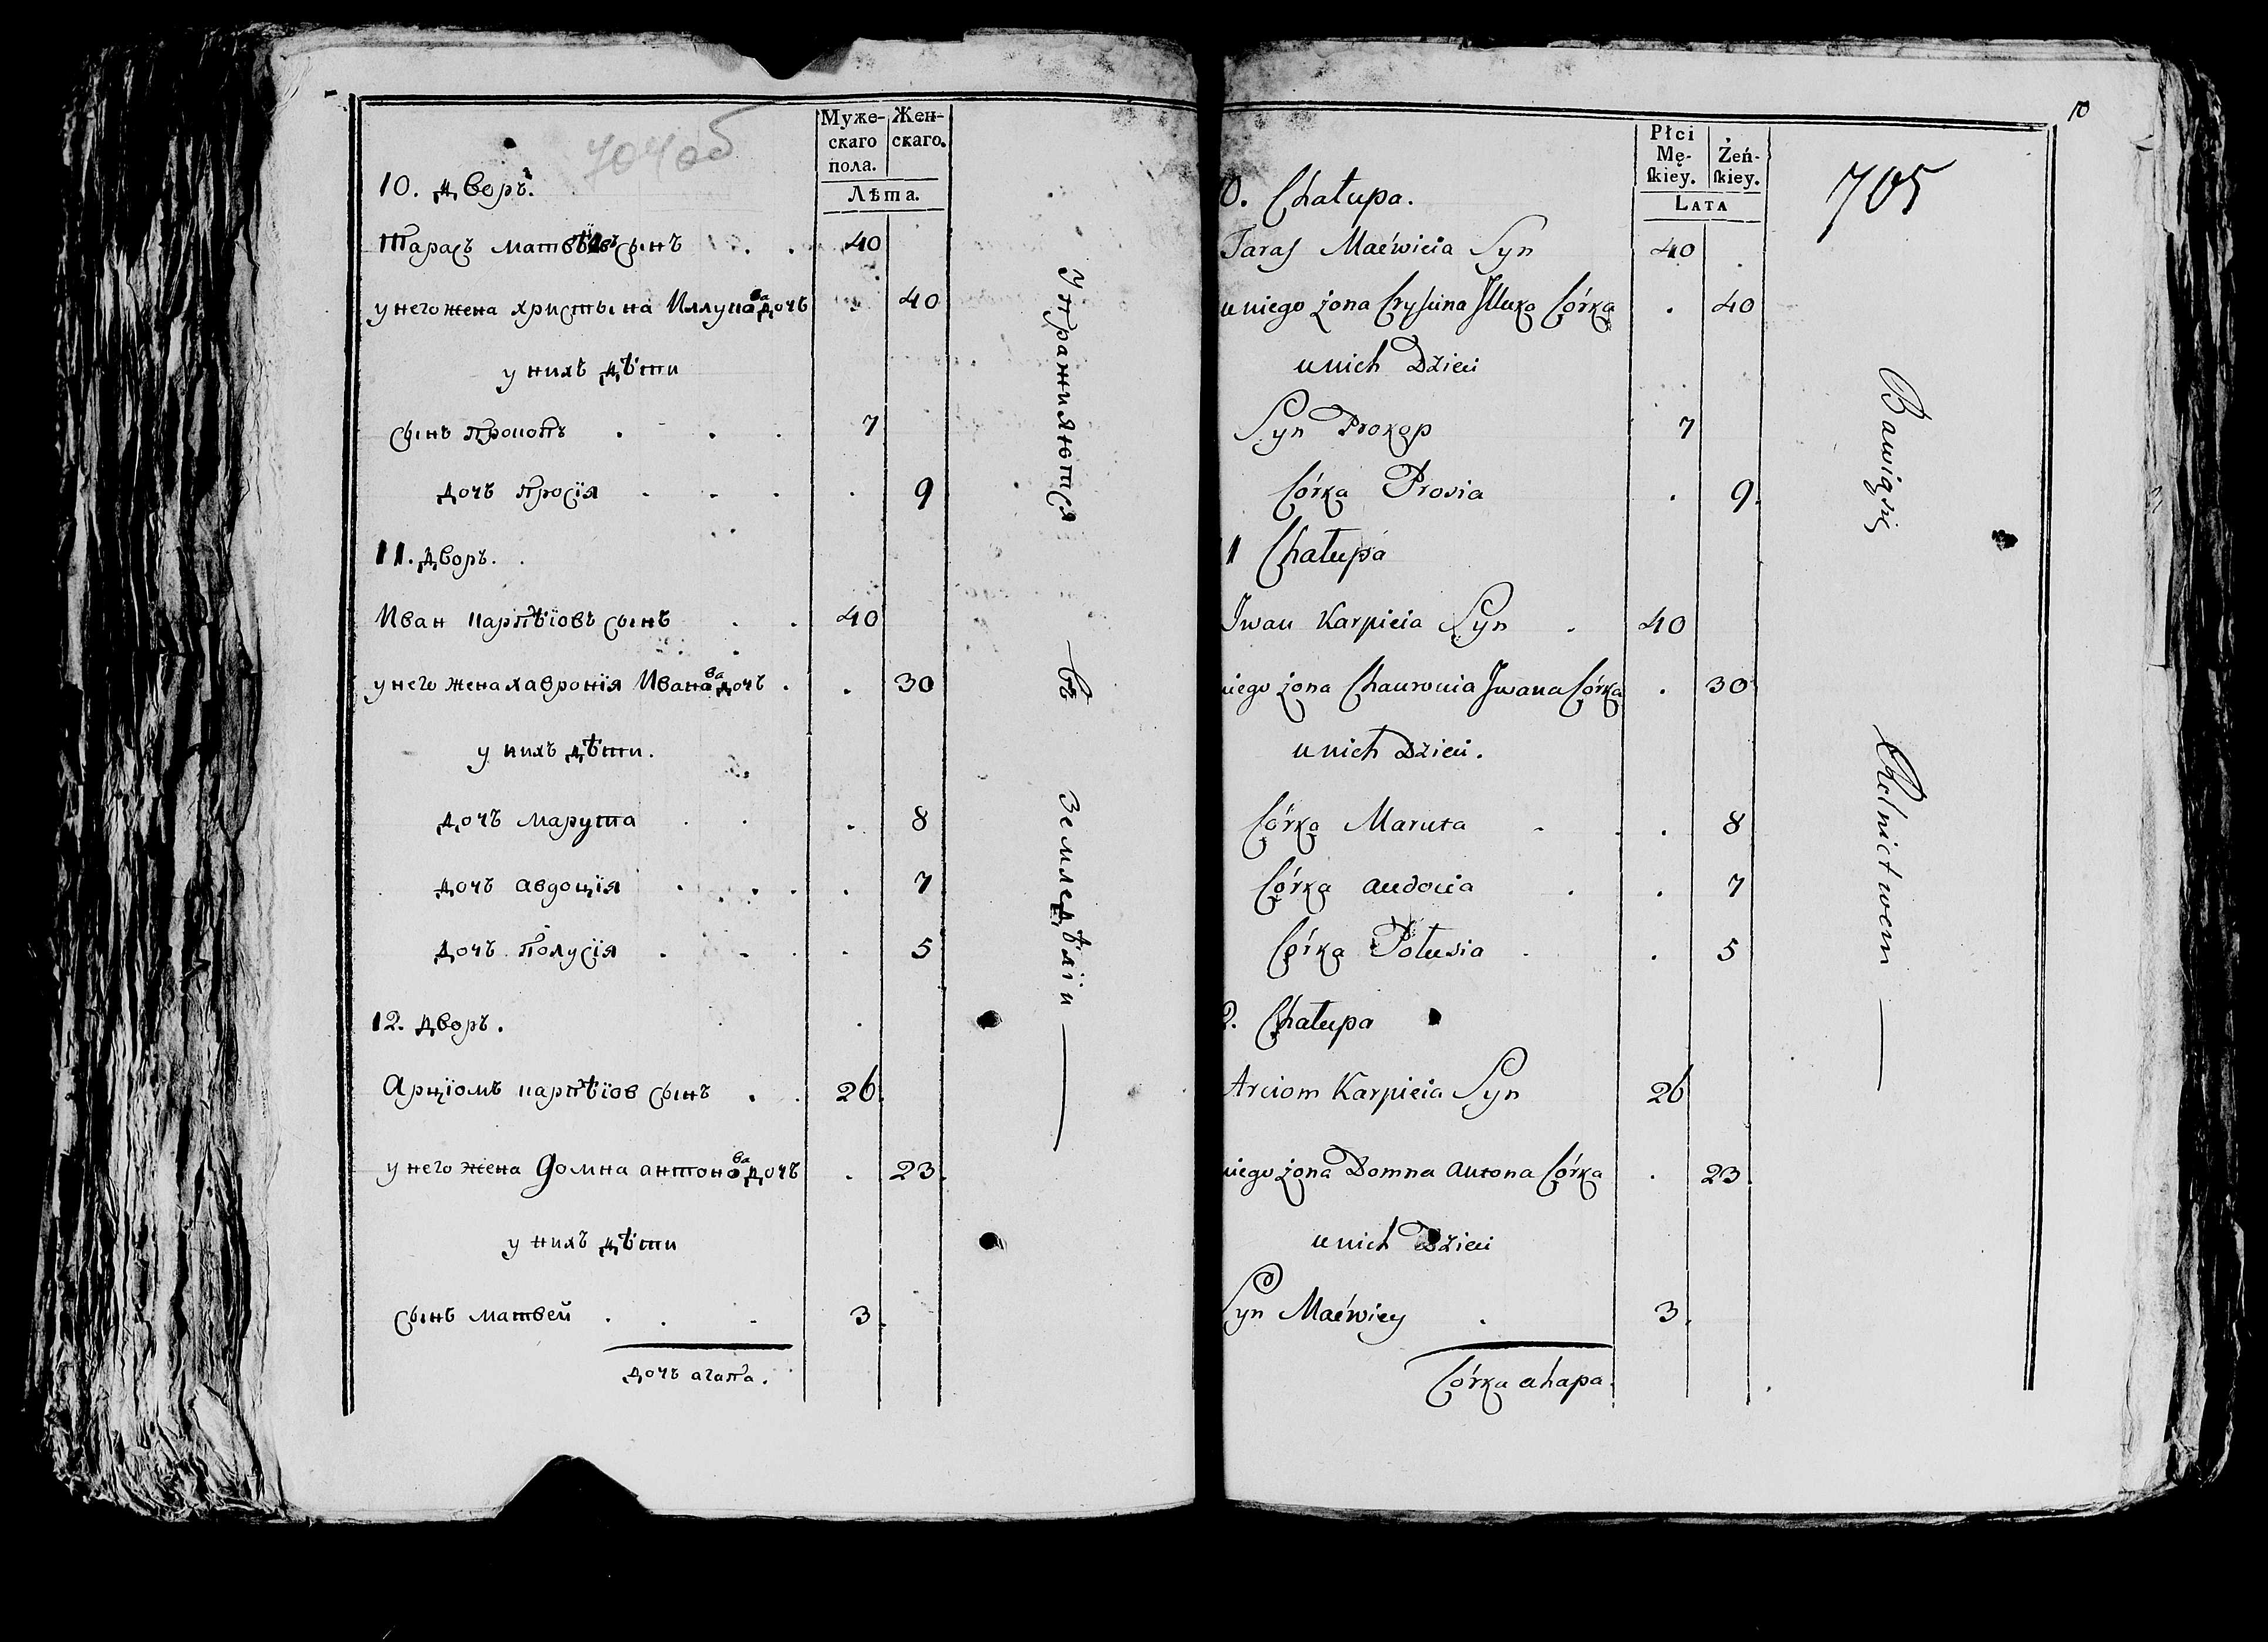 704об
Муже-
скаго
пола.
Жен-
скаго.
Лѣта.
10. дворъ.
Тарасъ сынъ . . 40
у него жена христына дочъ . 40
у нихъ дѣти
сынъ Прокопъ . . . 7
дочъ Просїя . . . . 9
11. дворъ.
Иван карпѣіовъ сынъ . . 40
у него жена хавронїя Иванова дочъ . . 30
у нихъ дѣти.
дочъ марута . . . 8
дочъ авдоцїя . . . . 7
дочъ Полусїя . . . . 5
12. дворъ.
Арцїомъ карпѣїов сынъ . . 26
у него жена Домна антонова дочъ . 23
у нихъ дѣти
сынъ матвей . . . 3
дочъ агапа.
Упражняются въ земледѣліи
10
705
Płci
Mę-
ſkiey.
Żeń-
ſkiey.
LATA
0. Chałupa.
Taras Maćwieia Syn 40
u niego żona Illuka Córka . 40
u nich Dzieci
Syn Prokop 7
Córka Prosia . 9.
11 Chałupa
Iwan Karpieia Syn . 40
niego żona Chauronia Iwana Córka . 30
u nich Dzieci.
Córka Maruta . . 8
Córka audocia . . 7
Córka Połusia . . 5
2. Chałupa
Arciom Karpieia Syn 26
niego żona Domna antona Córka . 23
u nich Dzieci
Syn Maćwiey . 3.
Córka ahapa.
Bawią się Rolnictwem